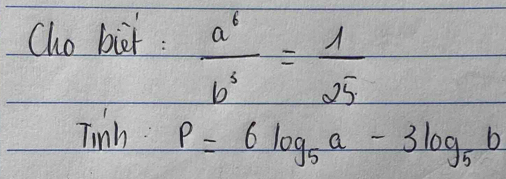 Cho biết : a⁶/b³ = 1/25
Tính : P = 6 log₅ a - 3 log₅ b